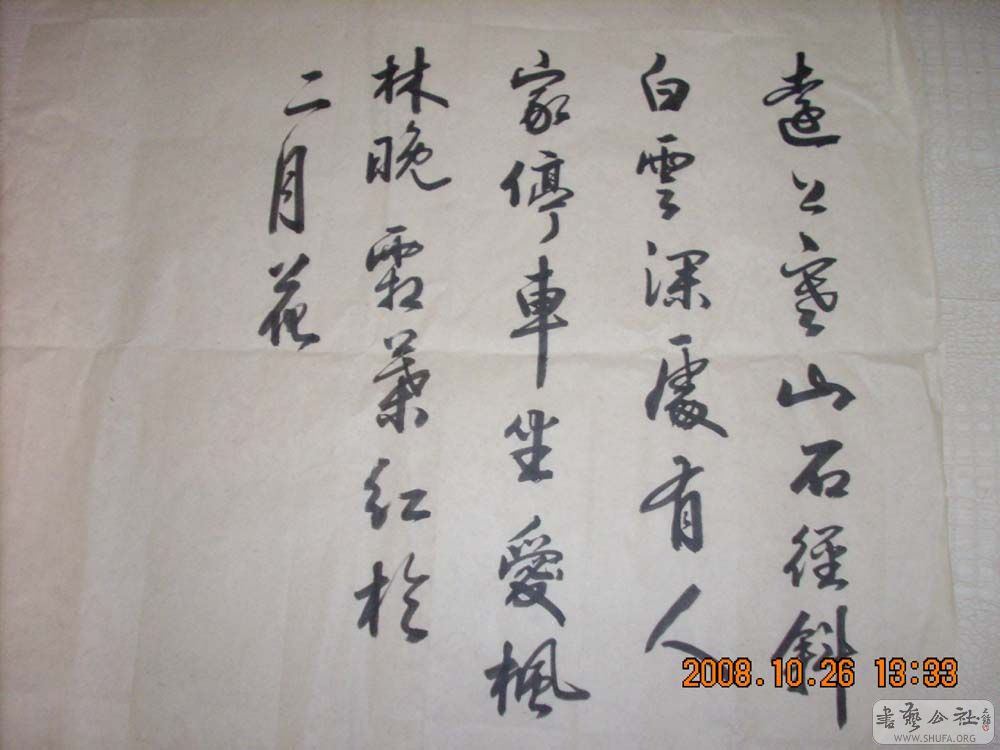 遠上寒山石徑斜
白雲深處有人
家停車坐愛楓
林晚霜葉紅於
二月花
2008.10.26 13:33
書藝公社
WWW.SHUFA.ORG